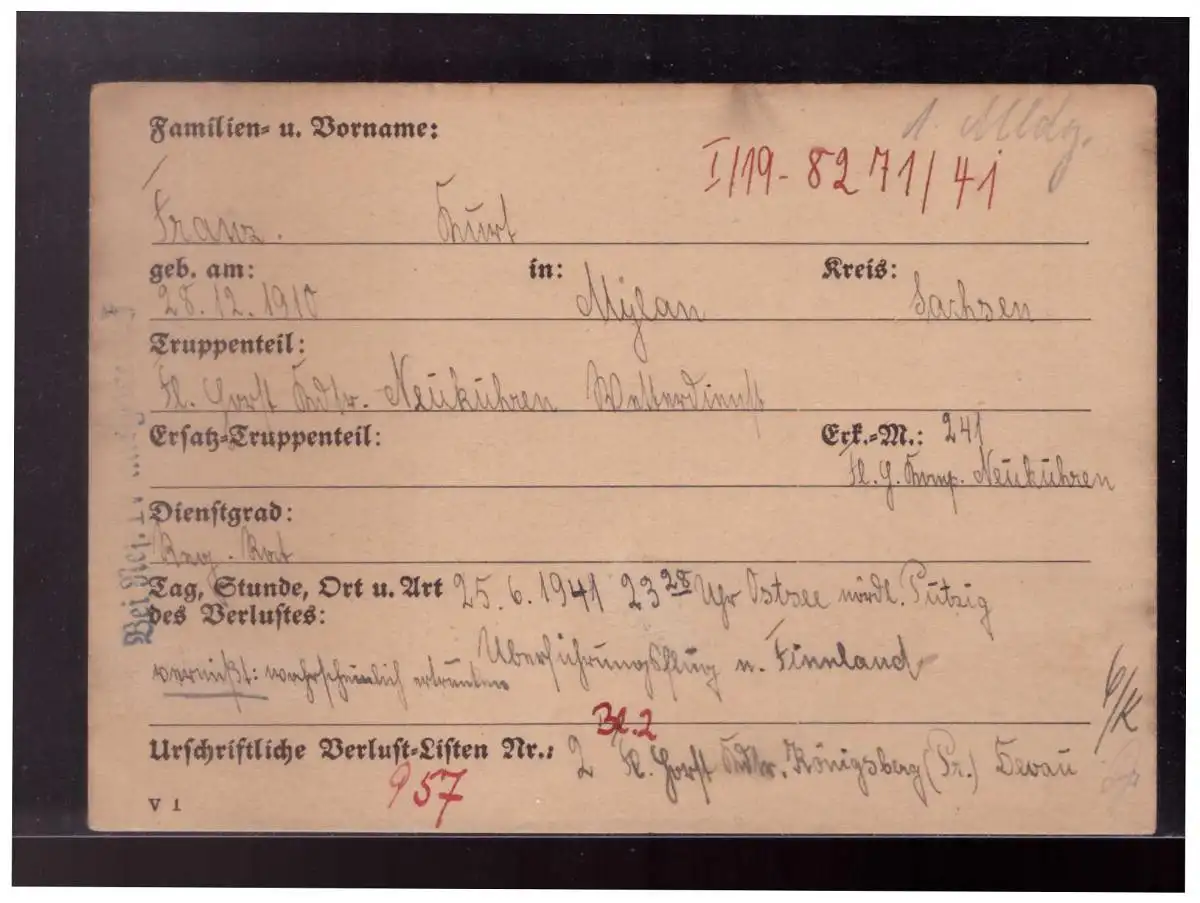 Familien- u. Vorname:
1. Mldg.
I/19-8271/41
Franz. Kurt
geb. am: in: Kreis:
28.12.1910 Mylau Sachsen
Truppenteil:
Fl. Horst Kdtr. Neukuhren Wetterdienst
Ersatz-Truppenteil: Erk.-M.: 241
Fl. H. Komp. Neukuhren
Dienstgrad:
Reg. Rat
Tag, Stunde, Ort u. Art 25.6.1941 23 28 Uhr Ostsee nördl. Putzig
des Verlustes:
vermißt: wahrscheinlich ertrunken Überführungsflug n. Finnland
b/K
Bl. 2
Urschriftliche Verlust-Listen Nr.: 2 Fl. Horst Kdtr. Königsberg (Pr.) Devau
957
V 1
Bei